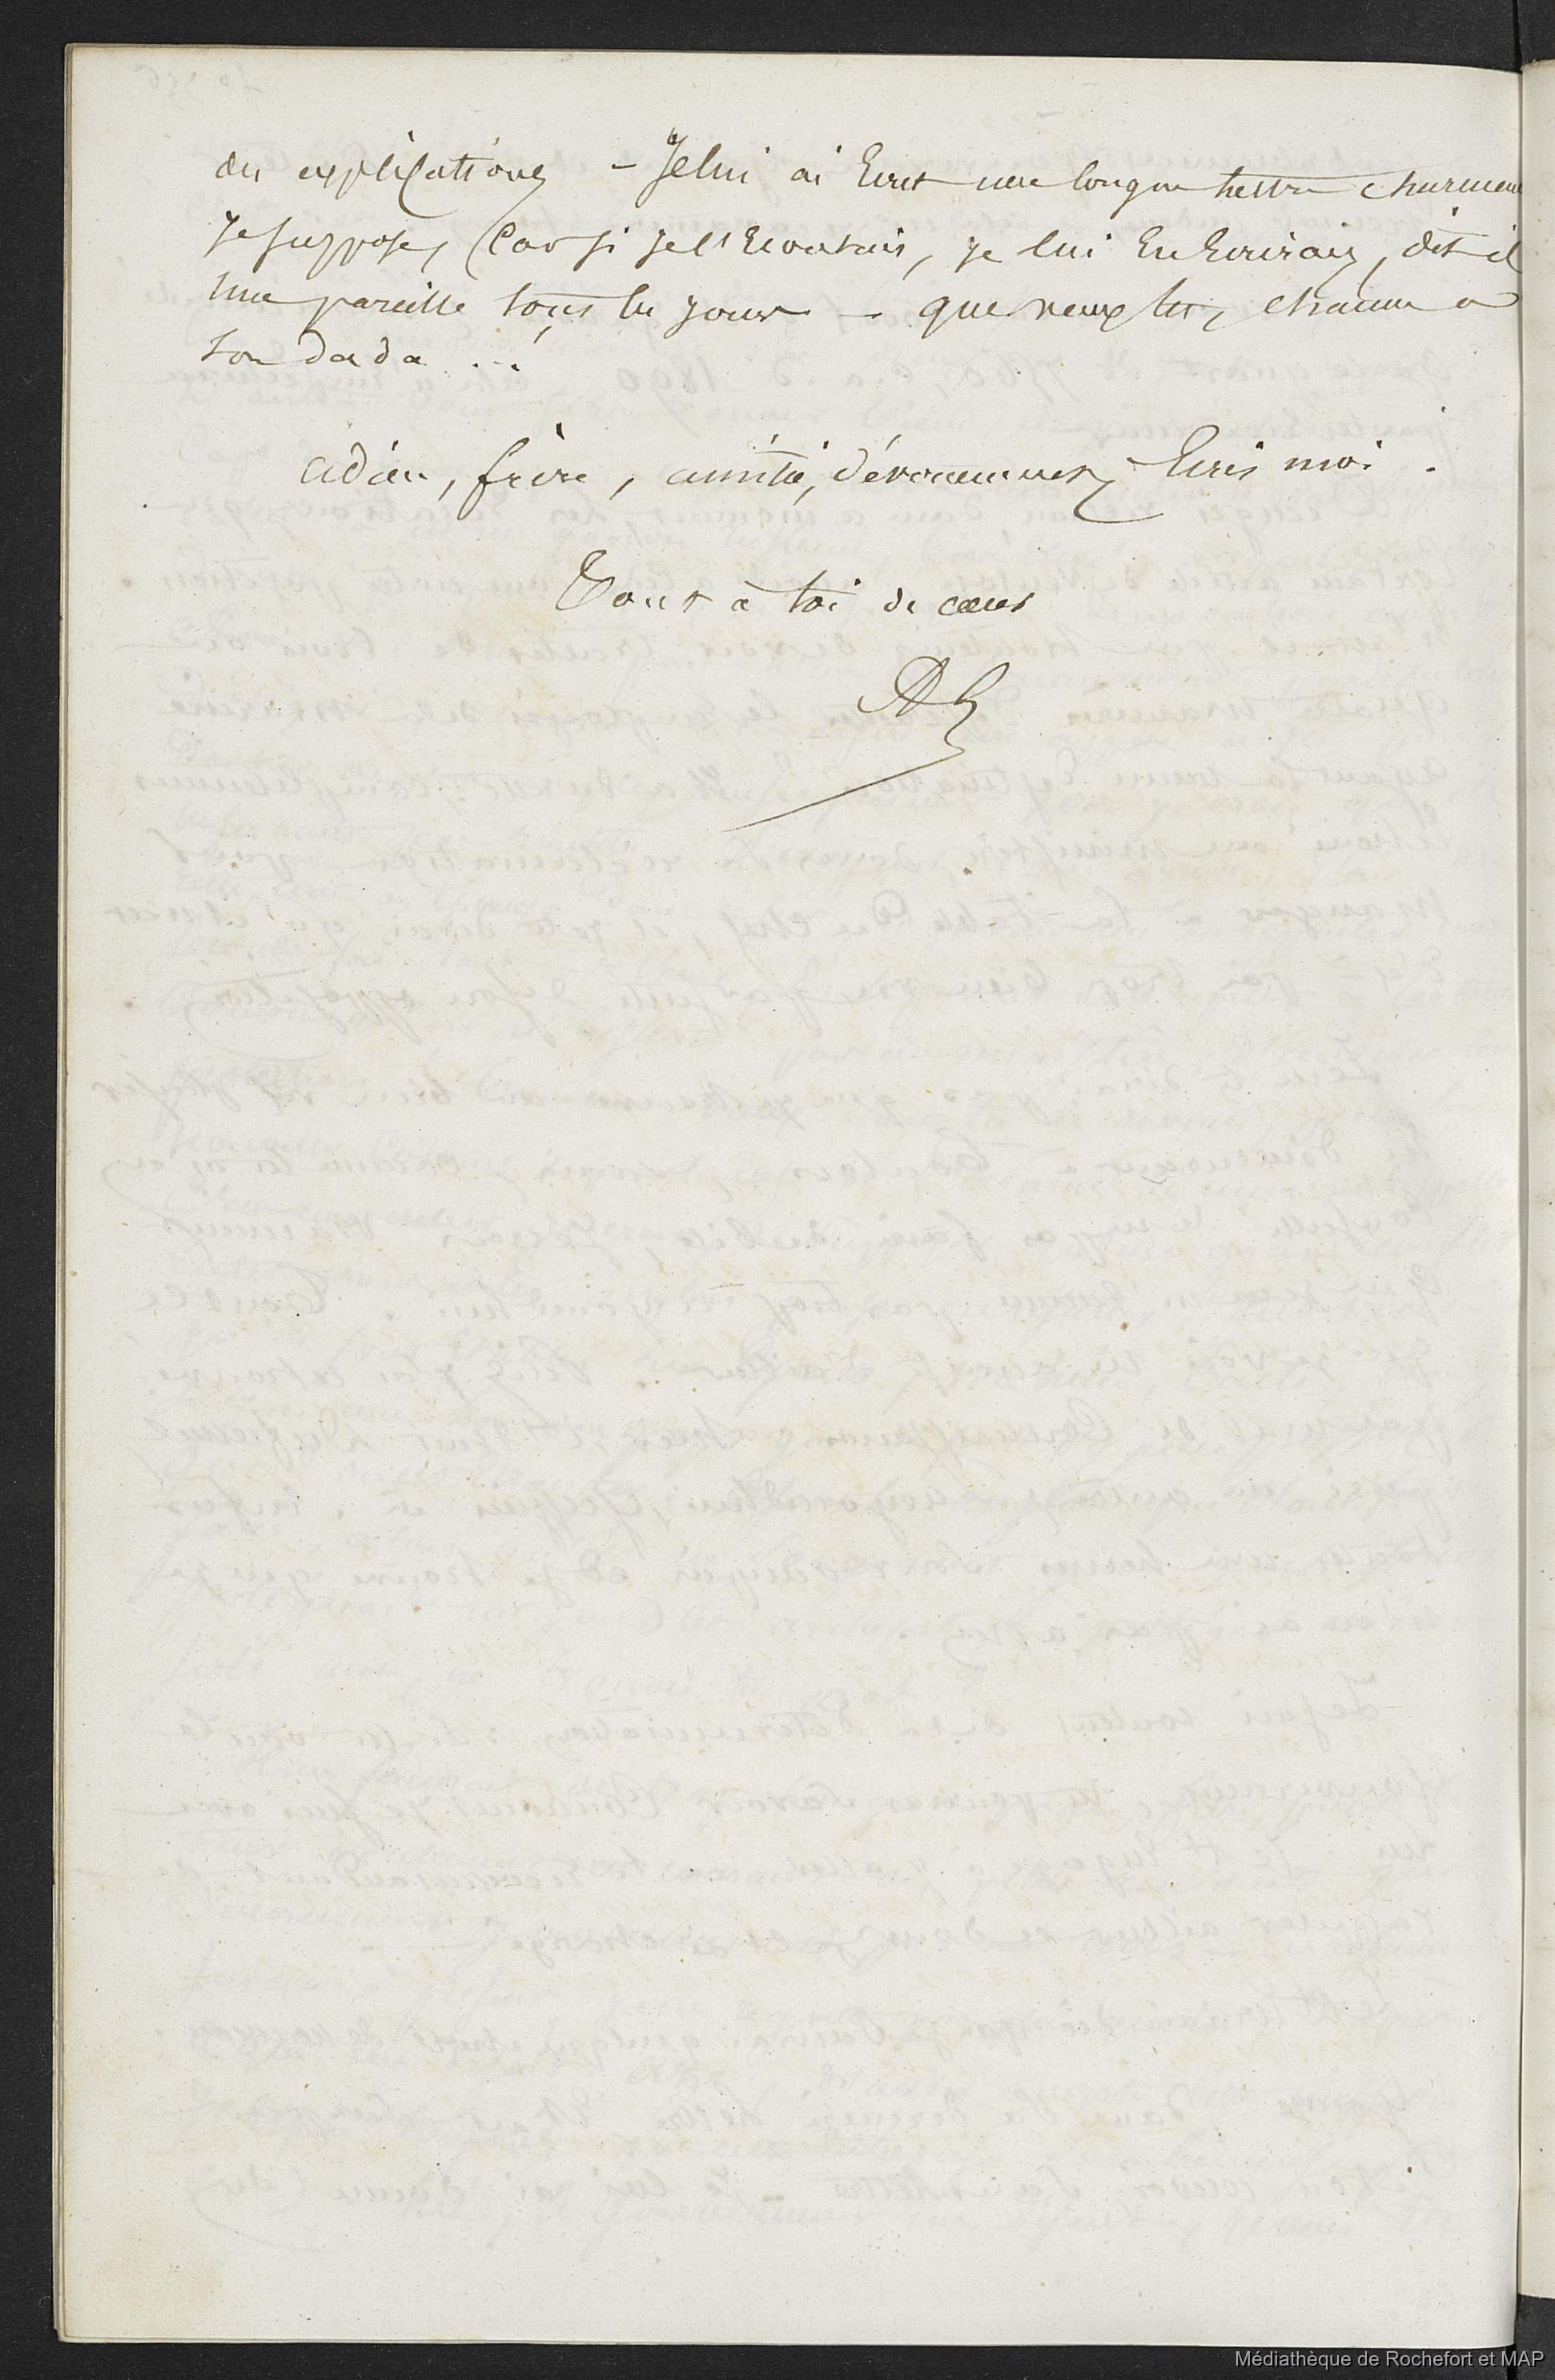 des explications – Je lui ai Ecrit une longue lettre charmante
Je suppose, Car si je l'Ecoutais, je lui En Ecrirais, dit-il
une pareille tous les jours – que veux tu, chacun a
son dada ...!
adieu, frère, amitié, dévouement, Ecris moi.
Tout à toi de cœur
Médiathèque de Rochefort et MAP